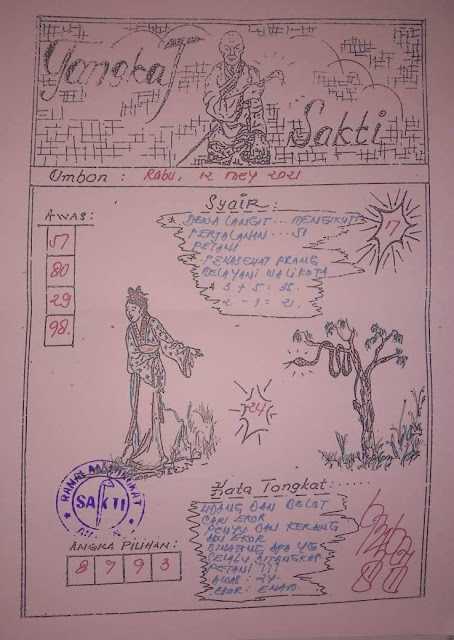 Tongkat
Sakti
Umbon : RABU, 12 MEY 2021
Syair:
AWAS:
51
80
29
98.
* DEWA LANGIT... MENGIKUTI
PERJALANAN... SI
PETANI
* PENASEHAT PRANG
BELAYANI WALIKOTA
* 3 + 5 = 35.
2 - 1 = 21.
17
24
RAMALAN TONGKAT
SAKTI
Kata Tongkat:
UDANG DAN BELUT
CARI EKOR
PENYU DAN KERANG
ADU EKOR
BINATANG APA YG
SELALU DITANGKAP
PETANI ???
AWAS : 24
EKOR : ENAM.
ANGKA PILIHAN:
8 7 9 3